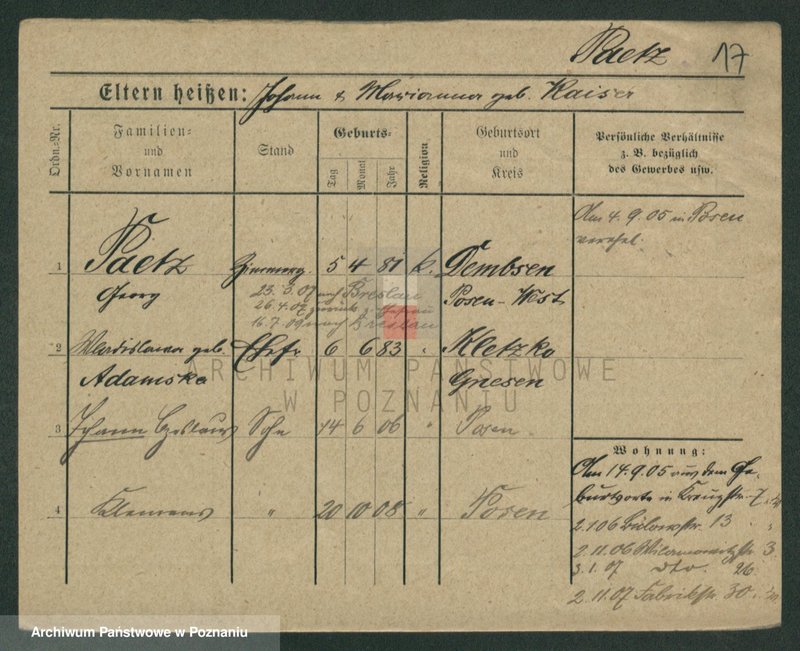 Paetz 17
Eltern heißen: Johann & Marianna geb. Kaiser
Ordn.-Nr.
Familien-
und
Vornamen
Stand
Geburts-
Tag
Monat
Jahr
Religion
Geburtsort
und
Kreis
Persönliche Verhältnisse
z. B. bezüglich
des Gewerbes usw.
Am 4.9.05 in Posen
verehel.
1 Paetz 5 4 81 k. Dembsen
Georg
23.3.07 nach Breslau
26.4.07 zurück
16.7.09 nach Breslau
Posen-West
2 Wladislawa geb. Ehefr 6 6 83 " Kletzko
Adamska
Gnesen
3 Johann Czeslaus Sohn 14 6 06 " Posen
4 Klemens " 20 10 08 " Posen
Wohnung:
Am 14.9.05 aus dem Ge-
burtsorte n. Kreuzstr. 7
2.1.06 Bülowstr. 13 "
2.11.06 Wilamowitzstr. 3
3.1.07 dto. 26
2.11.07 Fabrikstr. 30
ARCHIWUM PAŃSTWOWE
W POZNANIU
Archiwum Państwowe w Poznaniu